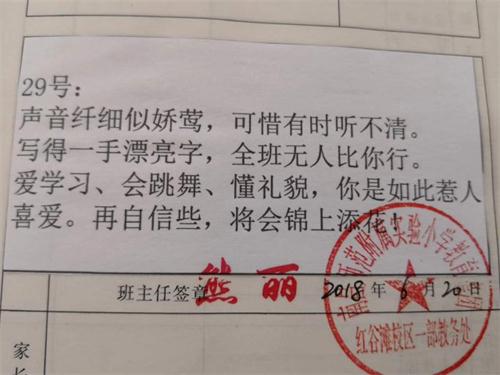 29号：
声音纤细似娇莺，可惜有时听不清。
写得一手漂亮字，全班无人比你行。
爱学习、会跳舞、懂礼貌，你是如此惹人
喜爱。再自信些，将会锦上添花！
班主任签章 熊丽 2018年6月20日
师范附属实验小学教育集团
红谷滩校区一部教务处
家
长